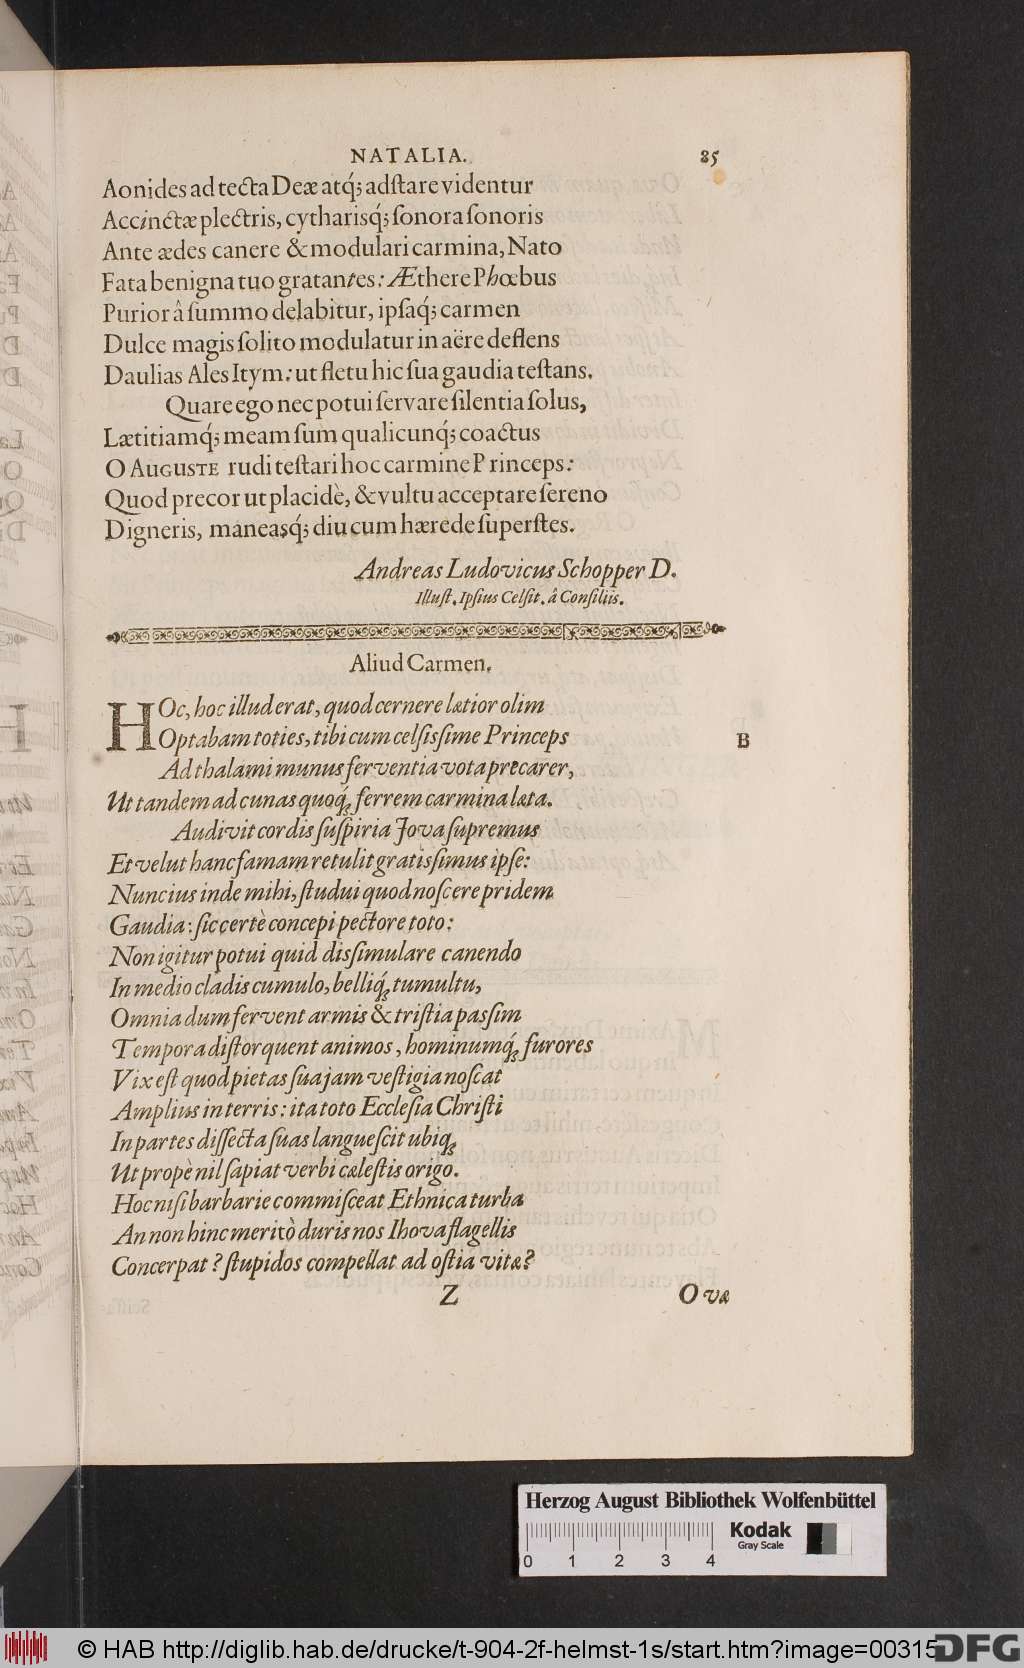 NATALIA. 85
Aonides ad tecta Deæ atq́; adſtare videntur
Accinctæ plectris, cytharisq́; ſonora ſonoris
Ante ædes canere & modulari carmina, Nato
Fata benigna tuo gratantes: Æthere Phœbus
Purior â ſummo delabitur, ipſaq́; carmen
Dulce magis ſolito modulatur in aëre deflens
Daulias Ales Itym: ut fletu hic ſua gaudia teſtans.
Quare ego nec potui ſervare ſilentia ſolus,
Lætitiamq́; meam ſum qualicunq́; coactus
O AUGUSTE rudi teſtari hoc carmine Princeps:
Quod precor ut placidè, & vultu acceptare ſereno
Digneris, maneasq́; diu cum hærede ſuperſtes.
Andreas Ludovicus Schopper D.
Illuſt. Ipſius Celſit. â Conſiliis.
Aliud Carmen.
HOc, hoc illud erat, quod cernere lætior olim
Optabam toties, tibi cum celſisſime Princeps
B
Ad thalami munus ferventia vota precarer,
Ut tandem ad cunas quoq́; ferrem carmina læta.
Audivit cordis ſuſpiria Jova ſupremus
Et velut hanc famam retulit gratisſimus ipſe:
Nuncius inde mihi, ſtudui quod noſcere pridem
Gaudia: ſic certè concepi pectore toto:
Non igitur potui quid disſimulare canendo
In medio cladis cumulo, belliq́; tumultu,
Omnia dum fervent armis & triſtia pasſim
Tempora diſtorquent animos, hominumq́; furores
Vix eſt quod pietas ſua jam veſtigia noſcat
Amplius in terris: ita toto Eccleſia Chriſti
In partes diſſecta ſuas langueſcit ubiq;
Ut propè nil ſapiat verbi cæleſtis origo.
Hoc niſi barbarie commiſceat Ethnica turba
An non hinc meritò duris nos Ihova flagellis
Concerpat? ſtupidos compellat ad oſtia vitæ?
Z O væ
Herzog August Bibliothek Wolfenbüttel
Kodak
Gray Scale
0 1 2 3 4
© HAB http://diglib.hab.de/drucke/t-904-2f-helmst-1s/start.htm?image=00315
DFG